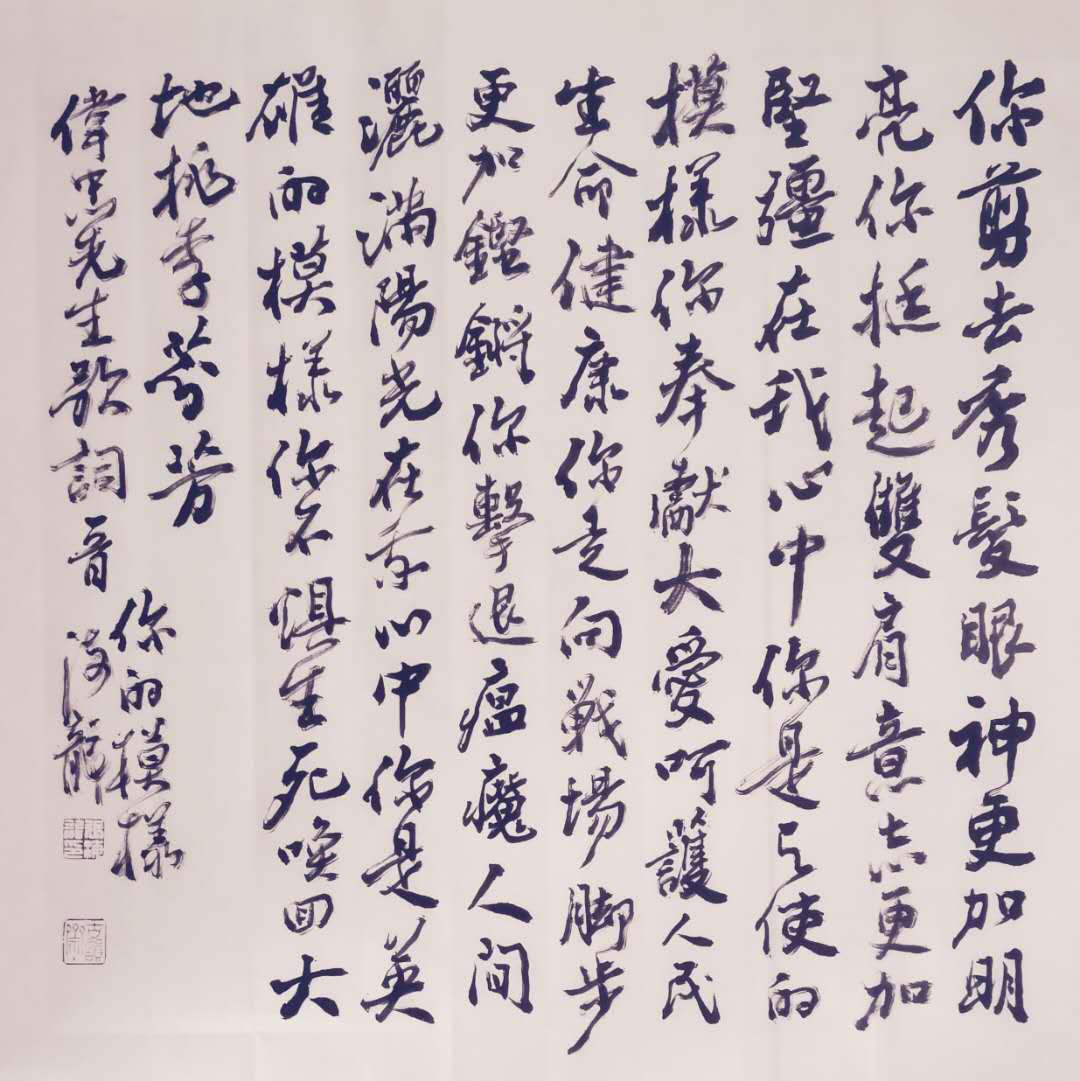 你剪去秀髮眼神更加明
亮你挺起雙肩意志更加
堅彊在我心中你是天使的
模樣你奉獻大愛呵護人民
生命健康你走向戰場脚步
更加鏗鏘你擊退瘟魔人間
灑滿陽光在我心中你是英
雄的模樣你不惧生死喚回大
地桃李芬芳
你的模樣
偉忠先生歌詞一首